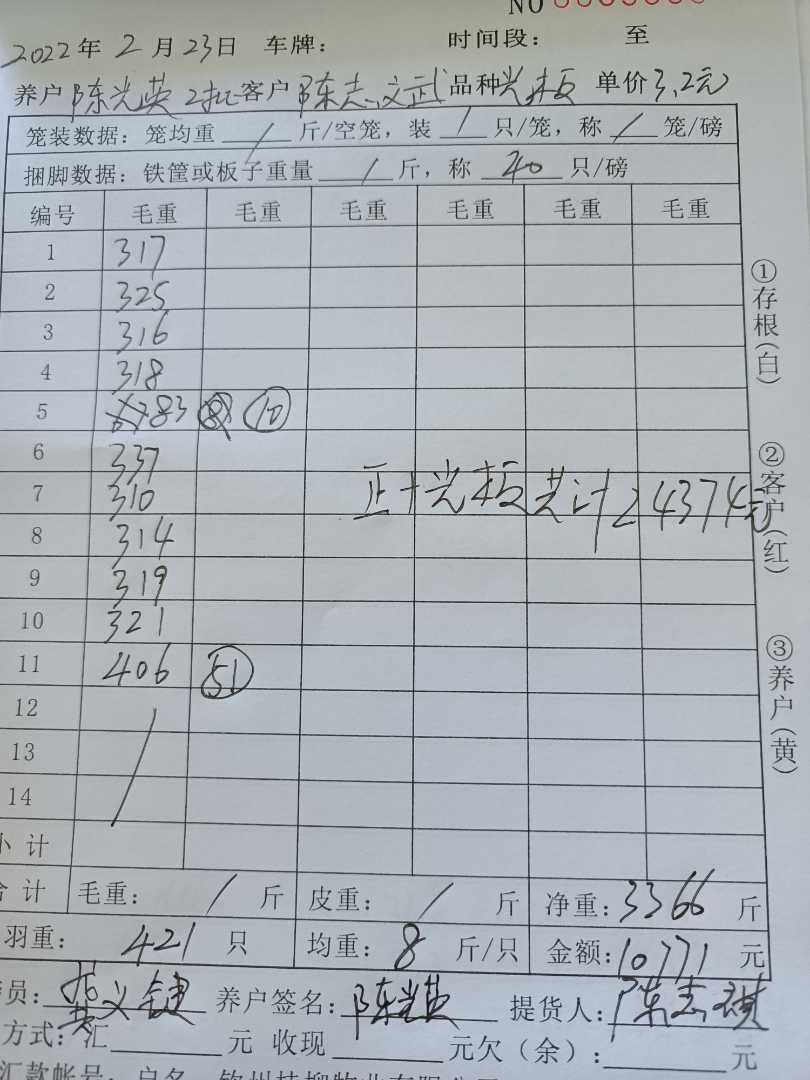 NO
2022年 2 月 23日 车牌： 时间段： 至
养户 陈光英 2批 客户 陈志文武 品种 光板 单价 3.2元
笼装数据：笼均重 / 斤/空笼，装 / 只/笼，称 / 笼/磅
捆脚数据：铁筐或板子重量 / 斤，称 40 只/磅
编号 毛重 毛重 毛重 毛重 毛重 毛重
1 317
2 325
3 316
4 318
5 83 10
6 337
7 310
正十光板共计24374元
8 314
9 319
10 321
11 406 51
12
13
14
小 计
合 计 毛重： / 斤 皮重： / 斤 净重：3366 斤
羽重： 421 只 均重： 8 斤/只 金额：10771 元
员： 义 养户签名：陈光英 提货人：陈志祺
方式：汇 元 收现 元欠（余）： 元
汇款帐号：户名
①存根（白）
②客户（红）
③养户（黄）